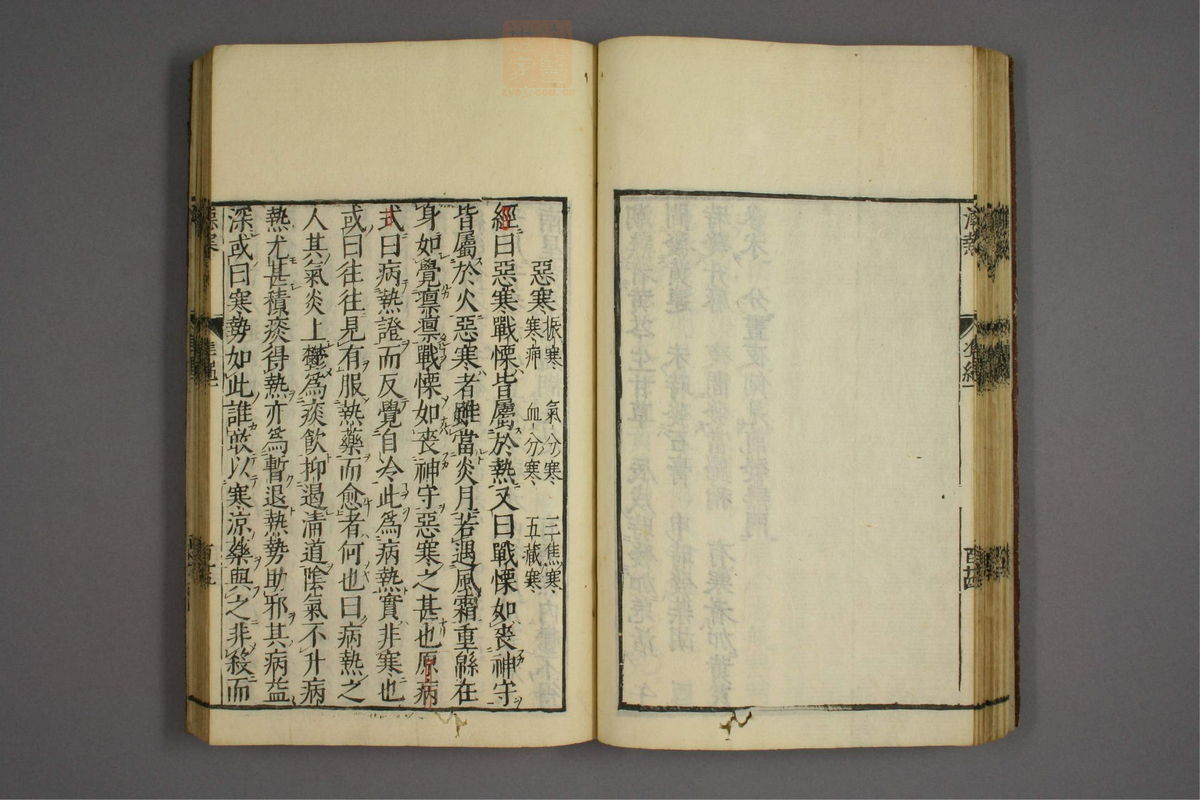 惡寒 振寒 寒痺 氣分寒 血分寒 三焦寒 五藏寒
經曰惡寒戰慄皆屬於熱又曰戰慄如喪神守
皆屬於火惡寒者雖當炎月若遇風霜重綿在
身如覺凛凛戰慄如喪神守惡寒之甚也原病
式曰病熱證而反覺自冷此爲病熱實非寒也
或曰往往見有服熱藥而愈者何也曰病熱之
人其氣炎上欝爲痰飲抑遏淸道陰氣不升病
熱尤甚積痰得熱亦爲暫退熱勢助邪其病益
深或曰寒勢如此誰敢以寒涼藥與之非殺而